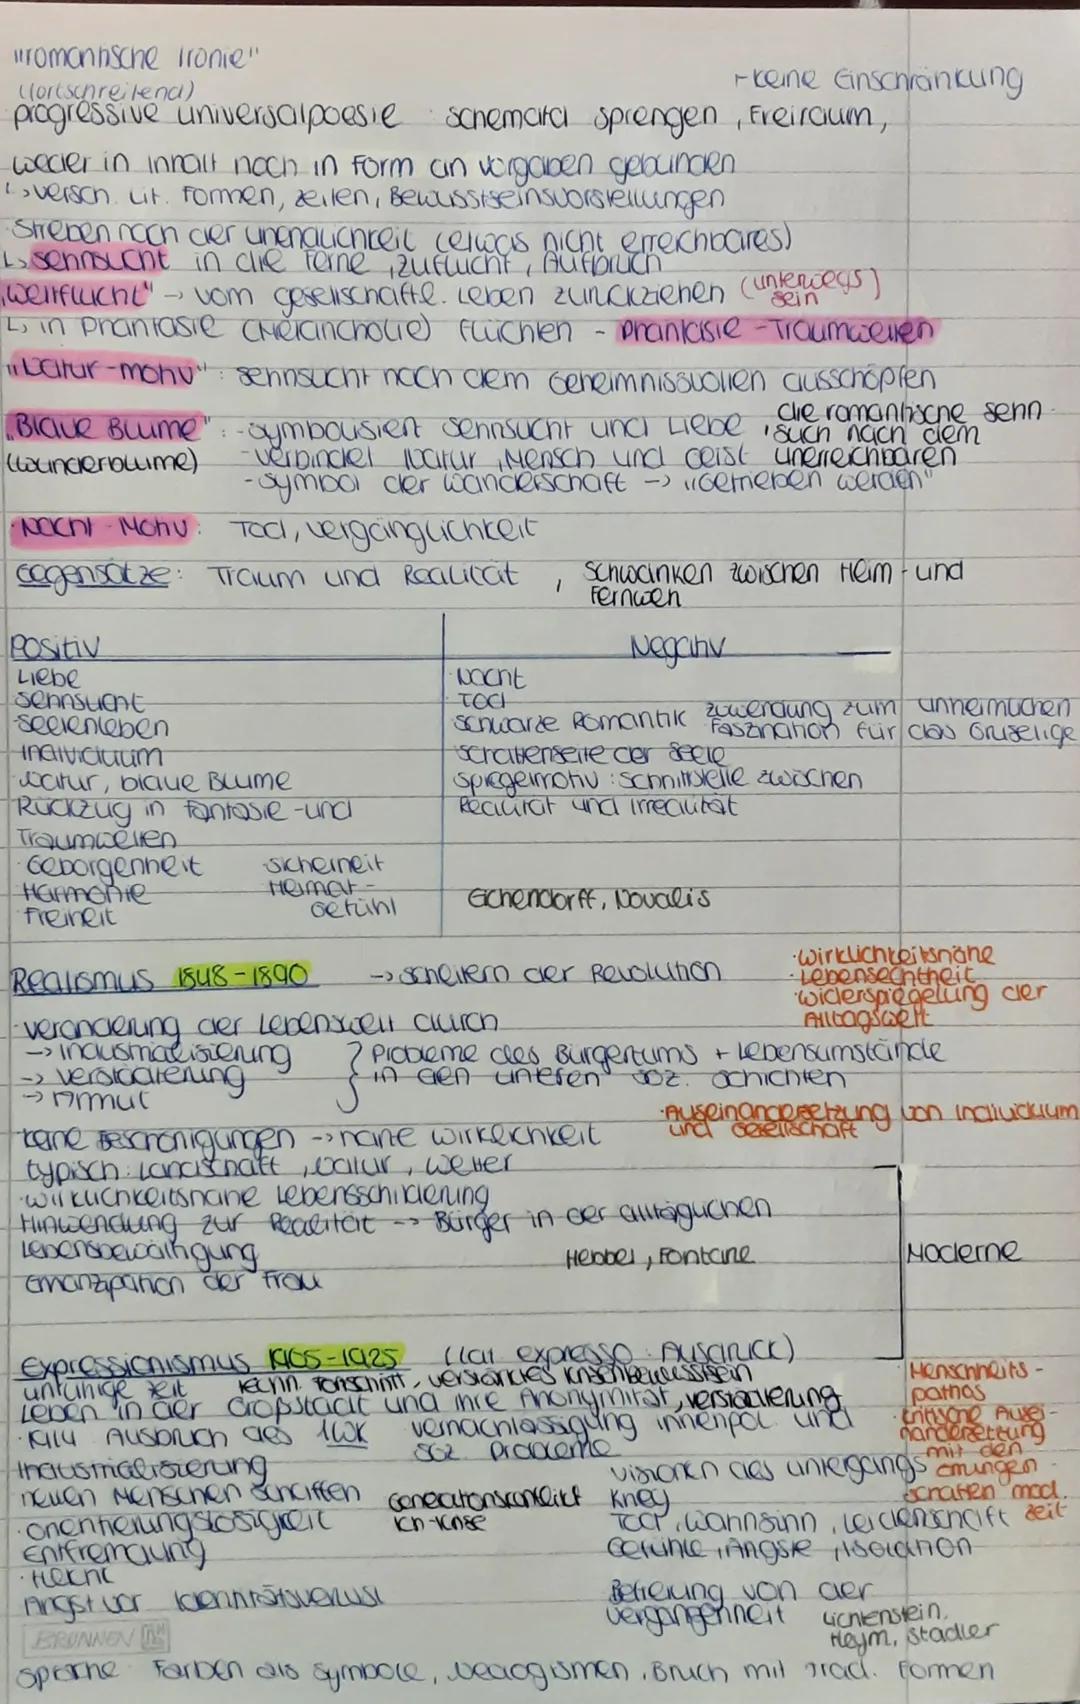 "romantische Ironie"
(fortschreitend)
- keine Einschränkung
progressive universalpoesie : schemata sprengen, Freiraum,
weder in Inhalt noch in Form an vorgaben gebunden
↳ versch. lit. Formen, zeiten, Bewusstseinsvorstellungen
Streben nach der unendlichkeit (etwas nicht erreichbares)
↳ sehnsucht in die Ferne, zuflucht, Aufbruch
"weltflucht" → vom gesellschaftl. Leben zurückziehen (unterwegs sein)
↳ in Phantasie (Melancholie) flüchten - Phantasie-Traumwelten
"Natur-motiv": sehnsucht nach dem Geheimnissvollen ausschöpfen
"Blaue Blume": - symbolisiert sehnsucht und Liebe, die romantische sehn-
such nach dem
(wunderblume) - verbindet Natur, Mensch und Geist unerreichbaren
- symbol der wanderschaft → "Getrieben werden"
· Nacht-Motiv: Tod, vergänglichkeit
Gegensätze: Traum und Realität, schwanken zwischen Heim- und
Fernweh
Positiv
Negativ
Liebe
· Nacht
sehnsucht
· Tod
seelenleben
schwarze Romantik zuwendung zum unheimlichen
Faszination für das Gruselige
Individuum
schattenseite der seele
Natur, blaue Blume
spiegelmotiv: schnittstelle zwischen
Rückzug in Fantasie- und
Realität und Irrealität
Traumwelten
· Geborgenheit
sicherheit
Harmonie
Heimat-
gefühl
Freiheit
Eichendorff, Novalis
Realismus 1848-1890 → scheitern der Revolution
· wirklichkeitsnähe
· Lebensechtheit
· widerspiegelung der
Alltagswelt
· veränderung der Lebenswelt durch
→ Industrialisierung } Probleme des Bürgertums + Lebensumstände
→ verstädterung in den unteren soz. schichten
→ Armut
· Auseinandersetzung von Individuum
und Gesellschaft
keine Beschönigungen → nahe wirklichkeit
typisch: Landschaft, Natur, wetter
· wirklichkeitsnahe Lebensschilderung
Hinwendung zur Realität → Bürger in der alltäglichen
Lebensbewältigung
Hebbel, Fontane
Moderne
emanzipation der Frau
Expressionismus 1905-1925 (lat. expresso: Ausdruck)
unruhige zeit
techn. Fortschritt,
Leben in der Großstadt und ihre Anonymität, verstädterung
· 1914 Ausbruch des 1WK
vernachlässigung innenpol. und
soz. Probleme
Menschheits-
pathos
· kritische Ausei-
nandersetzung
mit den
schaften mod.
zeit
Industrialisierung
visionen des untergangs
neuen Menschen schaffen
Generationskonflikt
Krieg
· orientierungslosigkeit
Ich-Krise
Tod, wahnsinn, Leidenschaft
Entfremdung
Gefühle, Ängste, Isolation
Angst vor Identitätsverlust
Befreiung von der
vergangenheit
Lichtenstein,
Heym, Stadler
BRUNNEN
Sprache: Farben als symbole, Neologismen, Bruch mit Trad. Formen